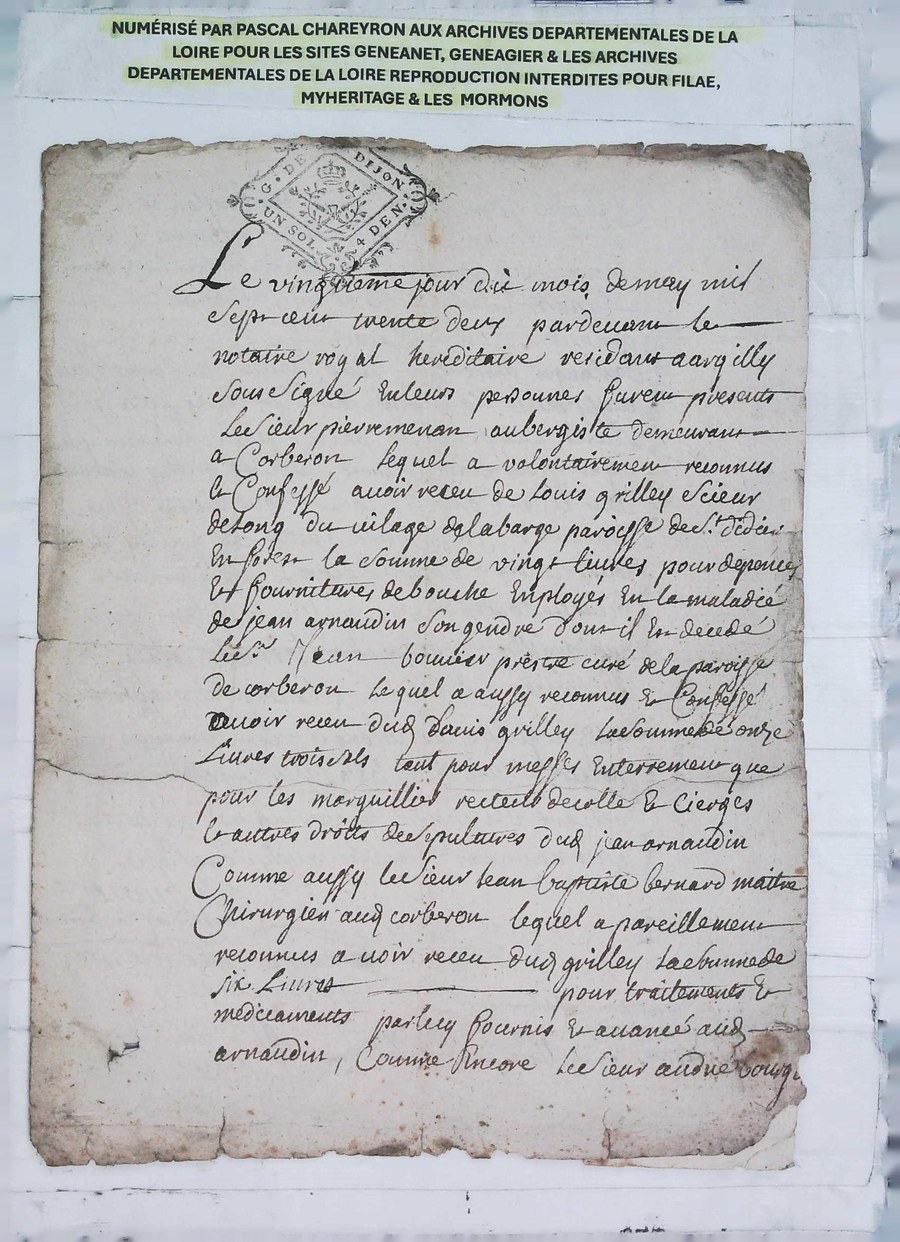 NUMÉRISÉ PAR PASCAL CHAREYRON AUX ARCHIVES DEPARTEMENTALES DE LA
LOIRE POUR LES SITES GENEANET, GENEAGIER & LES ARCHIVES
DEPARTEMENTALES DE LA LOIRE REPRODUCTION INTERDITES POUR FILAE,
MYHERITAGE & LES MORMONS
G. DE DIJON
UN SOL 4 DEN.
Le vingtieme jour du mois de may mil
sept cent trente deux pardevant le
notaire royal hereditaire residant a argilly
sous signé En leurs personnes furent presents
Le sieur pierre menan aubergiste demeurant
a Corberon lequel a volontairement reconnus
Et Confessé avoir receu de Louis grilley scieur
de long du vilage de labarge paroisse de St didier
En forest la somme de vingt livres pour depences
Et fournitures de bouche Employés En la maladie
de jean arnaudin son gendre dont il Est decedé
Le Sr jean bouvier prestre curé de la paroisse
de corberon lequel a aussy reconnus Et Confessé
avoir receu dud Louis grilley la somme de onze
Livres trois sols tant pour messes Enterrement que
pour les marguillier recteur decolle Et Cierges
Et autres droits de sepultures dud jean arnaudin
Comme aussy le sieur Jean baptiste bernard maitre
Chirurgien aud corberon lequel a pareillement
reconnus avoir receu dud grilley la somme de
six Livres pour traitements Et
medicaments par luy fournis Et avancé aud
arnaudin, Comme Encore le sieur andré